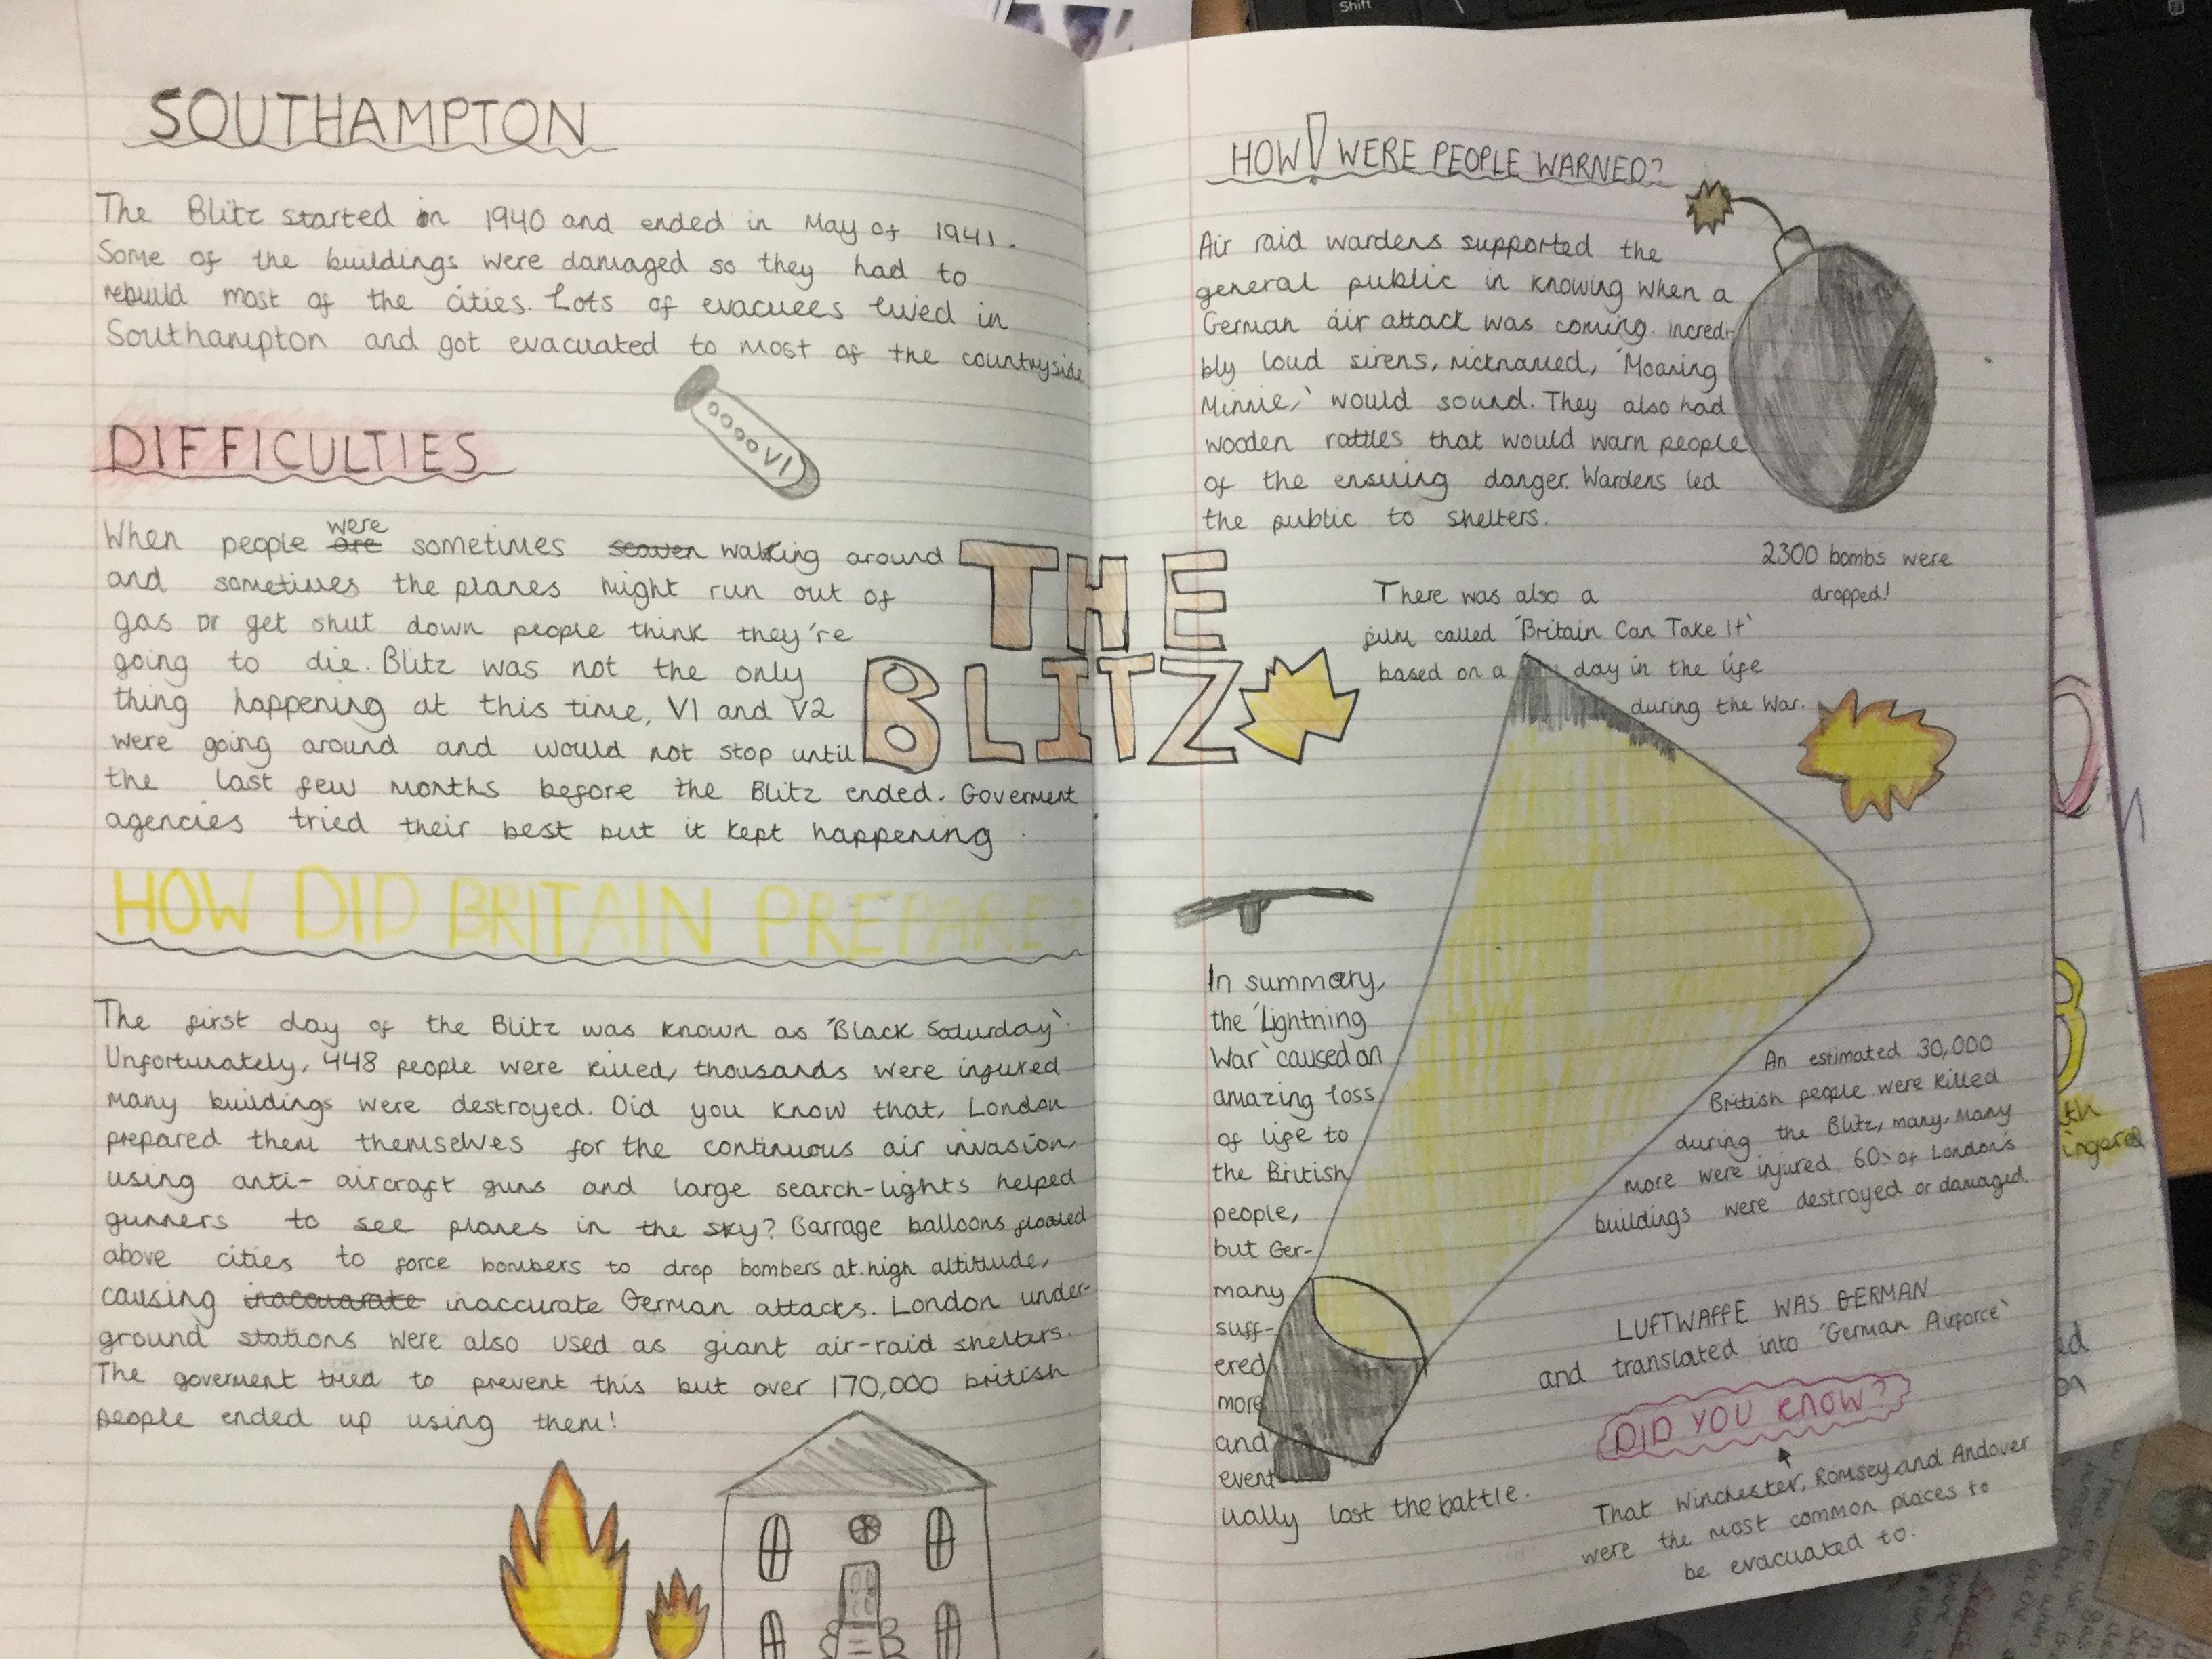 SOUTHAMPTON
The Blitz started in 1940 and ended in May of 1941.
Some of the buildings were damaged so they had to
rebuild most of the cities. Lots of evacuees lived in
Southampton and got evacuated to most of the countryside
DIFFICULTIES
V1
When people are were sometimes walking around
and sometimes the planes might run out of
gas or get shut down people think they're
going to die. Blitz was not the only
thing happening at this time, V1 and V2
were going around and would not stop until
the last few months before the Blitz ended. Goverment
agencies tried their best but it kept happening.
THE
BLITZ
HOW DID BRITAIN PREPARE?
The first day of the Blitz was known as 'Black Saturday'.
Unfortunately, 448 people were killed, thousands were injured
many buildings were destroyed. Did you know that, London
prepared them themselves for the continuous air invasion,
using anti-aircraft guns and large search-lights helped
gunners to see planes in the sky? Barrage balloons floated
above cities to force bombers to drop bombers at high altitude,
causing inaccurate German attacks. London under-
ground stations were also used as giant air-raid shelters.
The goverment tried to prevent this but over 170,000 british
people ended up using them!
HOW! WERE PEOPLE WARNED?
Air raid wardens supported the
general public in knowing when a
German air attack was coming. Incredi-
bly loud sirens, nicknamed, 'Moaning
Minnie,' would sound. They also had
wooden rattles that would warn people
of the ensuing danger. Wardens led
the public to shelters.
2300 bombs were
dropped!
There was also a
film called 'Britain Can Take It'
based on a day in the life
during the War.
In summary,
the 'Lightning
War' caused an
amazing loss
of life to
the British
people,
but Ger-
many
suff-
ered
more
and
event
ually lost the battle.
An estimated 30,000
British people were killed
during the Blitz, many, many
more were injured. 60% of London's
buildings were destroyed or damaged.
LUFTWAFFE WAS GERMAN
and translated into 'German Airforce'
DID YOU KNOW?
That Winchester, Romsey and Andover
were the most common places to
be evacuated to.
Shift